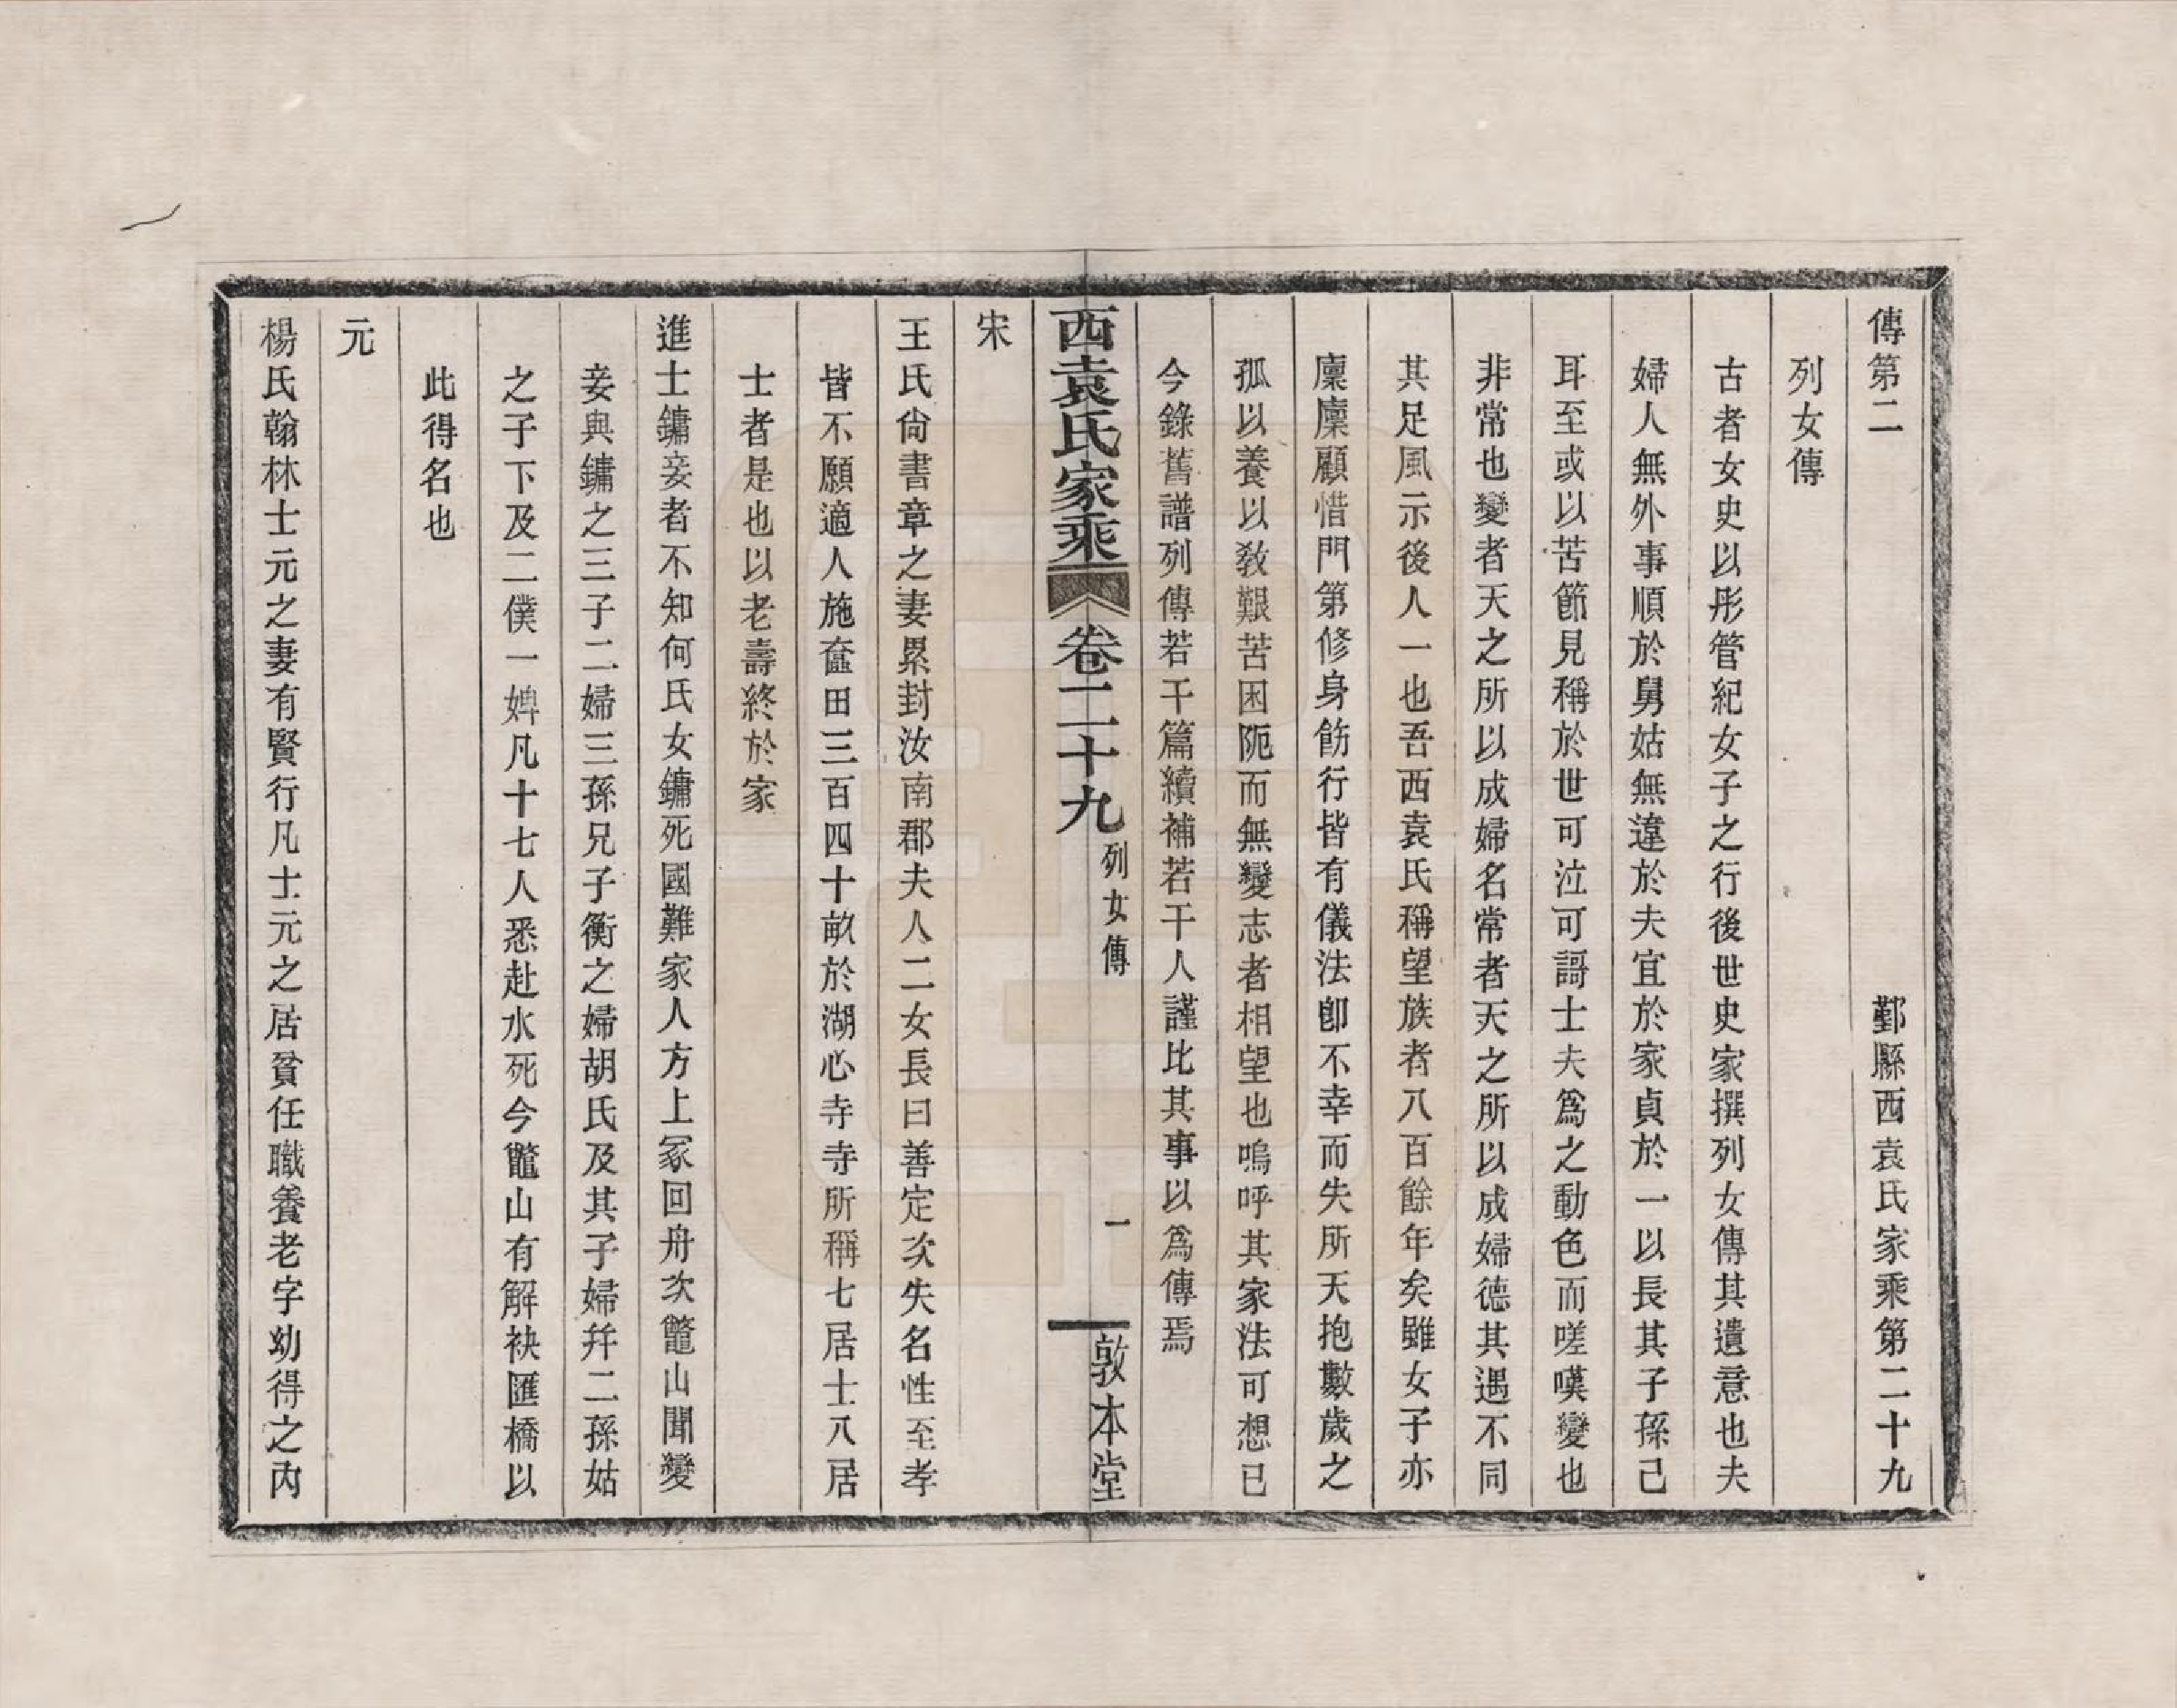 傳第二　鄞縣西袁氏家乘第二十九
列女傳
古者女史以彤管紀女子之行後世史家撰列女傳其遺意也夫
婦人無外事順於舅姑無違於夫宜於家貞於一以長其子孫己
耳至或以苦節見稱於世可泣可謌士夫爲之動色而嗟嘆變也
非常也變者天之所以成婦名常者天之所以成婦德其遇不同
其足風示後人一也吾西袁氏稱望族者八百餘年矣雖女子亦
廩廩顧惜門第修身飭行皆有儀法卽不幸而失所天抱數歲之
孤以養以敎艱苦困阨而無變志者相望也嗚呼其家法可想已
今錄舊譜列傳若干篇續補若干人謹比其事以爲傳焉
西袁氏家乘　卷二十九　列女傳　一　敦本堂
宋
王氏尙書章之妻累封汝南郡夫人二女長曰善定次失名性至孝
皆不願適人施奩田三百四十畝於湖心寺寺所稱七居士八居
士者是也以老壽終於家
進士鏞妾者不知何氏女鏞死國難家人方上冢回舟次鼈山聞變
妾與鏞之三子二婦三孫兄子衡之婦胡氏及其子婦幷二孫姑
之子下及二僕一婢凡十七人悉赴水死今鼈山有解袂匯橋以
此得名也
元
楊氏翰林士元之妻有賢行凡士元之居貧任職養老字幼得之內